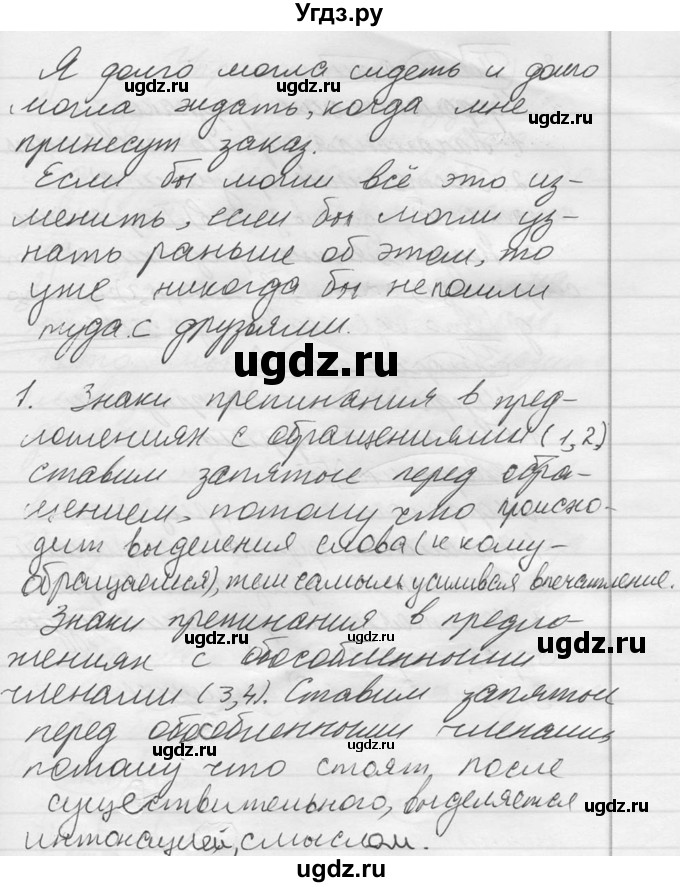 Угдз.ру
Я долго могла сидеть и долго
могла ждать, когда мне
ugdz.ru
принесут заказ.
Если бы могли всё это из-
менить, если бы могли уз-
нать раньше об этом, то
уже никогда бы не пошли
туда с друзьями.
ugdz.ru
1. Знаки препинания в пред-
ложениях с обращениями (1,2)
ставим запятые перед обра-
щением, потому что происхо-
дит выделения слова (к кому-
обращаемся), тем самым усиливая впечатление.
Знаки препинания в предло-
ugdz.ru
ugdz.ru
ugdz.ru
жениях с обособленными
членами (3,4). Ставим запятые
перед обособленными членами,
ugdz.ru
ugdz.ru
потому что стоят после
существительного, выделяется
ugdz.ru
интонацией, смыслом.
ugdz.ru
ugdz.ru